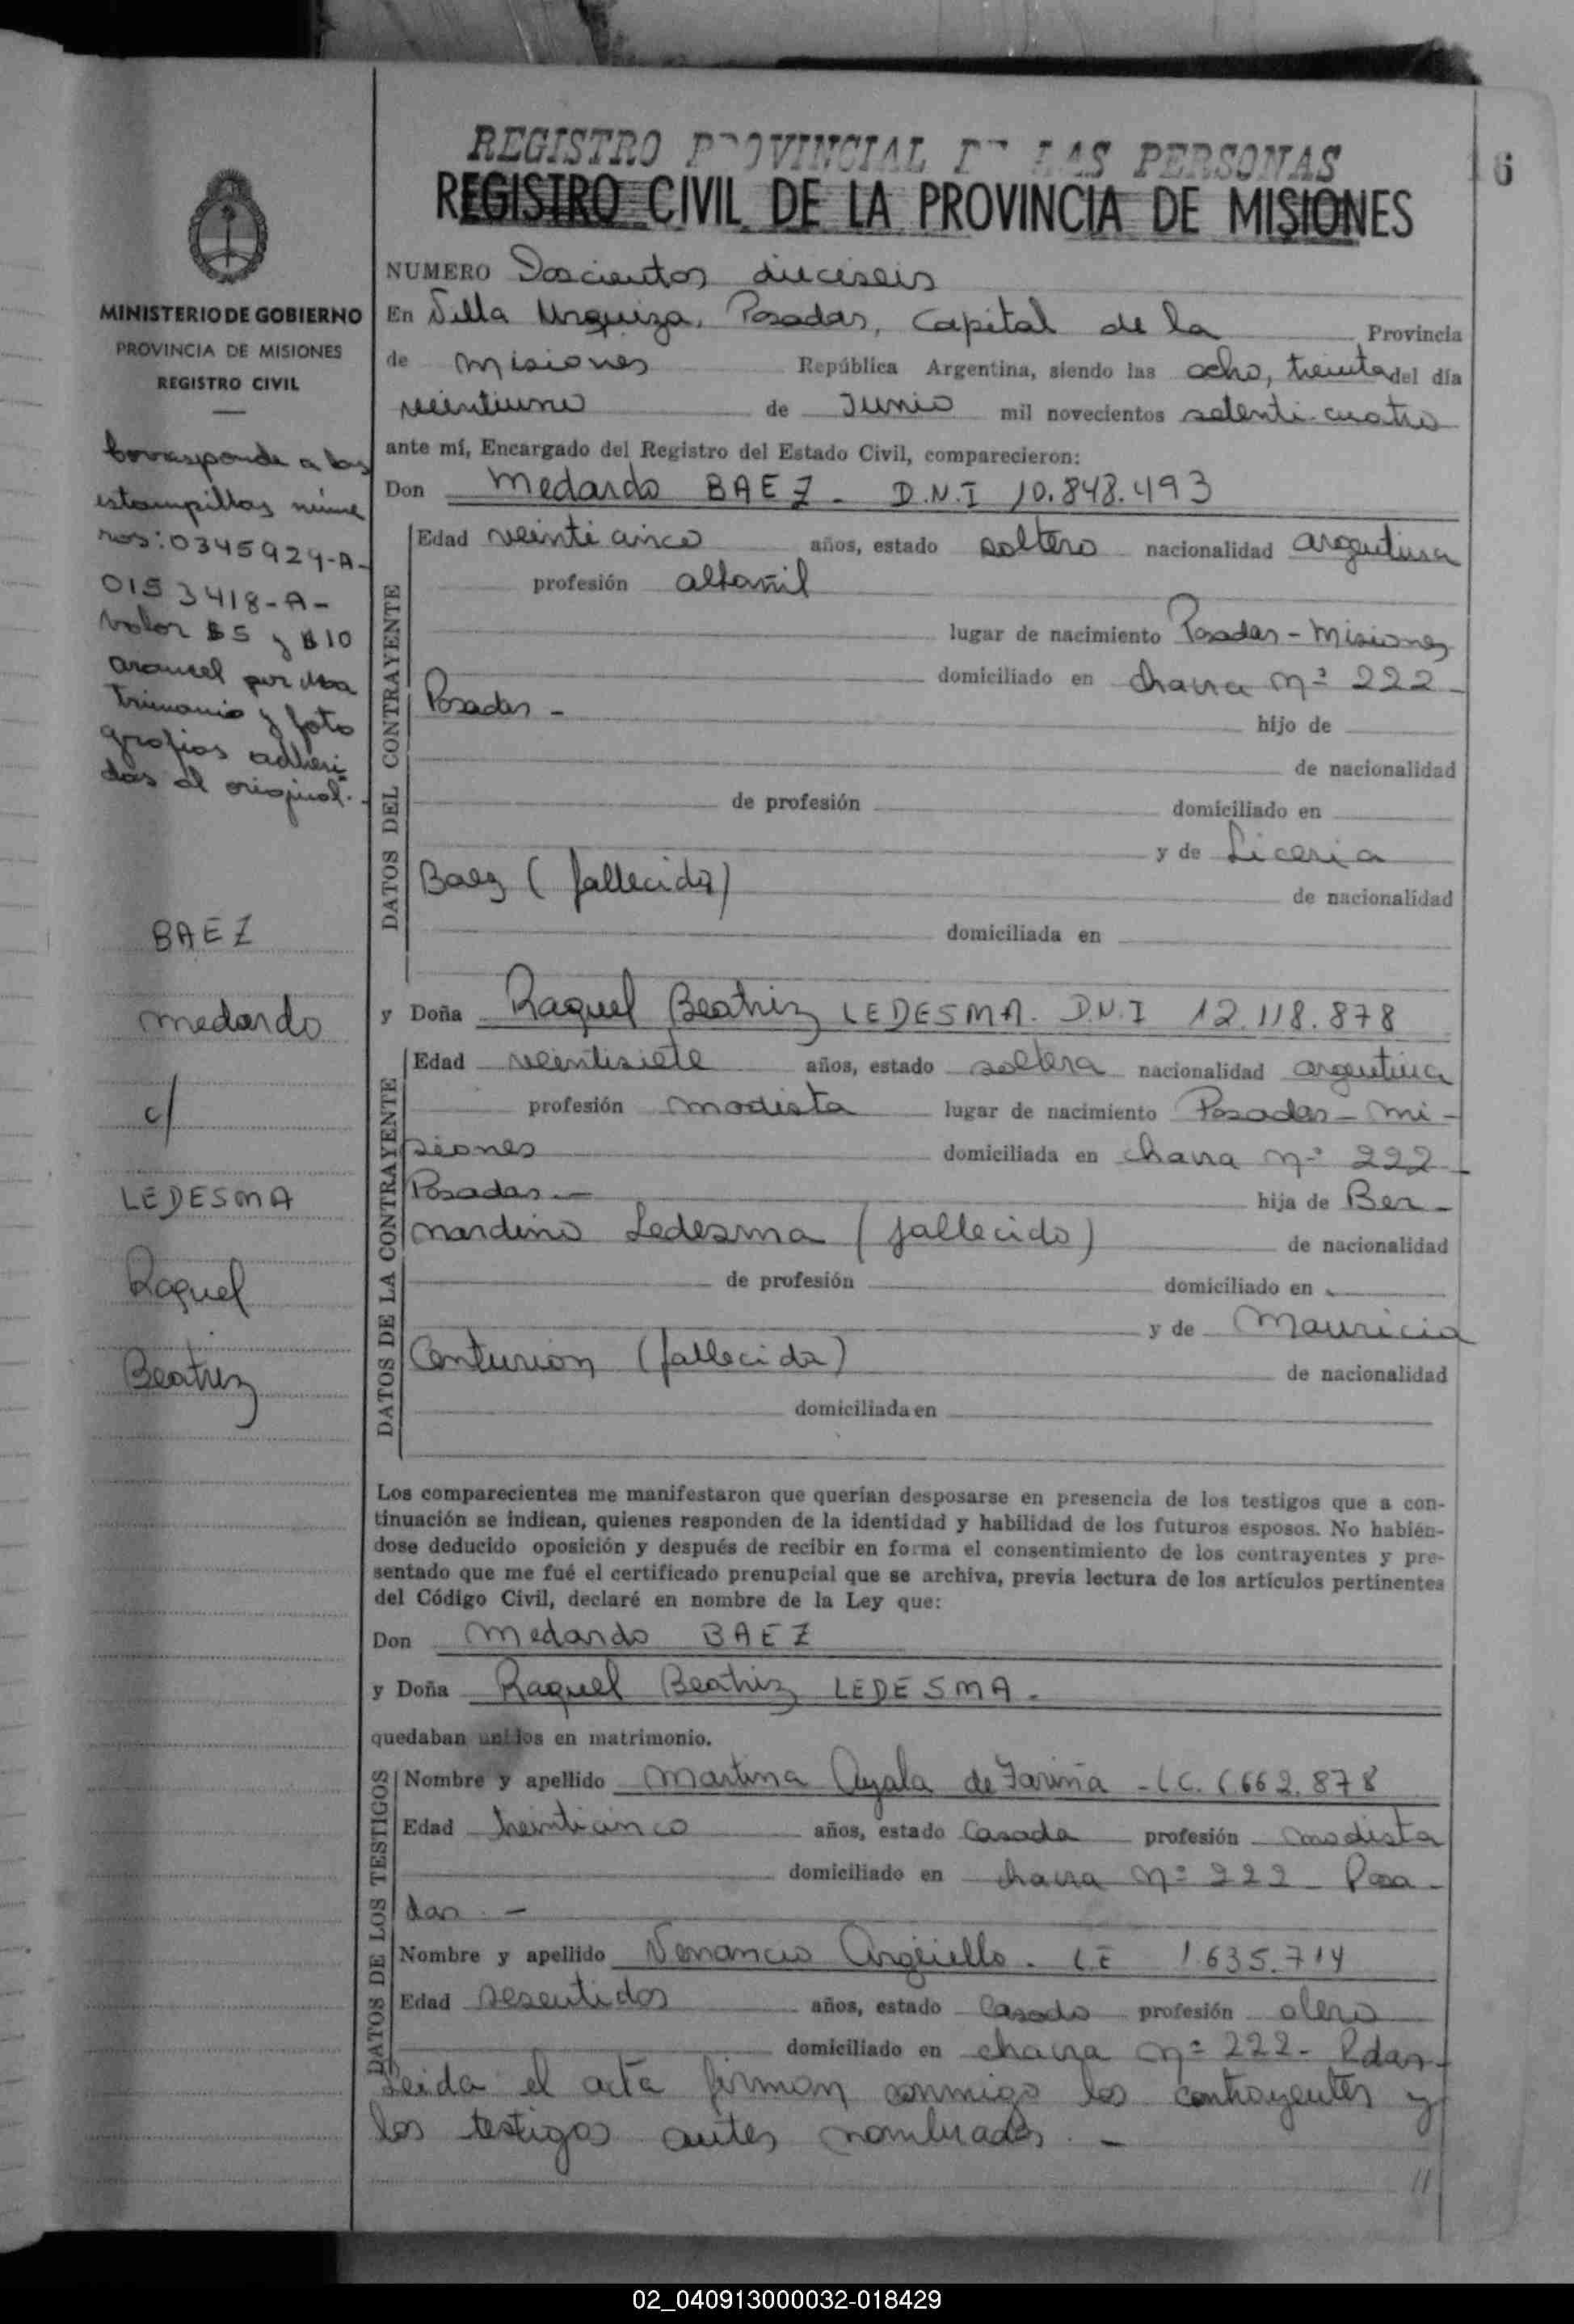 REGISTRO PROVINCIAL DE LAS PERSONAS
6
REGISTRO CIVIL DE LA PROVINCIA DE MISIONES
MINISTERIO DE GOBIERNO
PROVINCIA DE MISIONES
REGISTRO CIVIL
Corresponde a las
estampillas núme
ros: 0345929-A-
0153418-A-
Valor $5 y $10
arancel por Ma
trimonio y foto
grafias adheri
das al original.-
BAEZ
Medardo
c/
LEDESMA
Raquel
Beatriz
NUMERO Doscientos dieciseis
En Villa Urquiza, Posadas, Capital de la Provincia
de Misiones República Argentina, siendo las ocho, treinta del día
veintiuno de Junio mil novecientos setenti cuatro
ante mí, Encargado del Registro del Estado Civil, comparecieron:
Don Medardo BAEZ - D.N.I 10.848.493
DATOS DEL CONTRAYENTE
Edad veinti cinco años, estado soltero nacionalidad argentina
profesión albañil
lugar de nacimiento Posadas - Misiones
domiciliado en chacra Nº 222 -
Posadas - hijo de
de nacionalidad
de profesión domiciliado en
y de Liceria
Baez (fallecida) de nacionalidad
domiciliada en
y Doña Raquel Beatriz LEDESMA. D.N.I 12.118.878
DATOS DE LA CONTRAYENTE
Edad veintisiete años, estado soltera nacionalidad argentina
profesión modista lugar de nacimiento Posadas - Mi -
siones domiciliada en chacra Nº 222 -
Posadas. - hija de Ber -
nardino Ledesma (fallecido) de nacionalidad
de profesión domiciliado en
y de Mauricia
Centurion (fallecida) de nacionalidad
domiciliada en
Los comparecientes me manifestaron que querían desposarse en presencia de los testigos que a con-
tinuación se indican, quienes responden de la identidad y habilidad de los futuros esposos. No habién-
dose deducido oposición y después de recibir en forma el consentimiento de los contrayentes y pre-
sentado que me fué el certificado prenupcial que se archiva, previa lectura de los artículos pertinentes
del Código Civil, declaré en nombre de la Ley que:
Don Medardo BAEZ
y Doña Raquel Beatriz LEDESMA -
quedaban unidos en matrimonio.
DATOS DE LOS TESTIGOS
Nombre y apellido Martina Ayala de Fariña - L.C. 6.662.878
Edad treinticinco años, estado Casada profesión modista
domiciliado en chacra Nº 222 - Posa -
das. -
Nombre y apellido Venancio Argüello. L.E 1.635.714
Edad sesentidos años, estado Casado profesión olero
domiciliado en chacra Nº 222 - Pdas -
Leida el acta firman conmigo los contrayentes y
los testigos antes nombrados. -
//
02_040913000032-018429